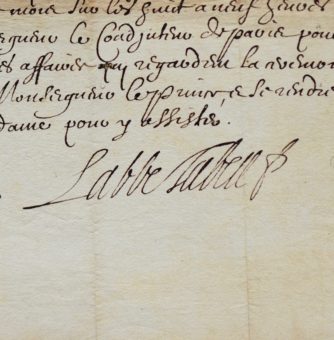 mois sur les huit a neuf heures
le Condjuteur de paris pour
affaires qui regardent la
Monseigneur le prince se rendre
dame pour y assister.
Labbe